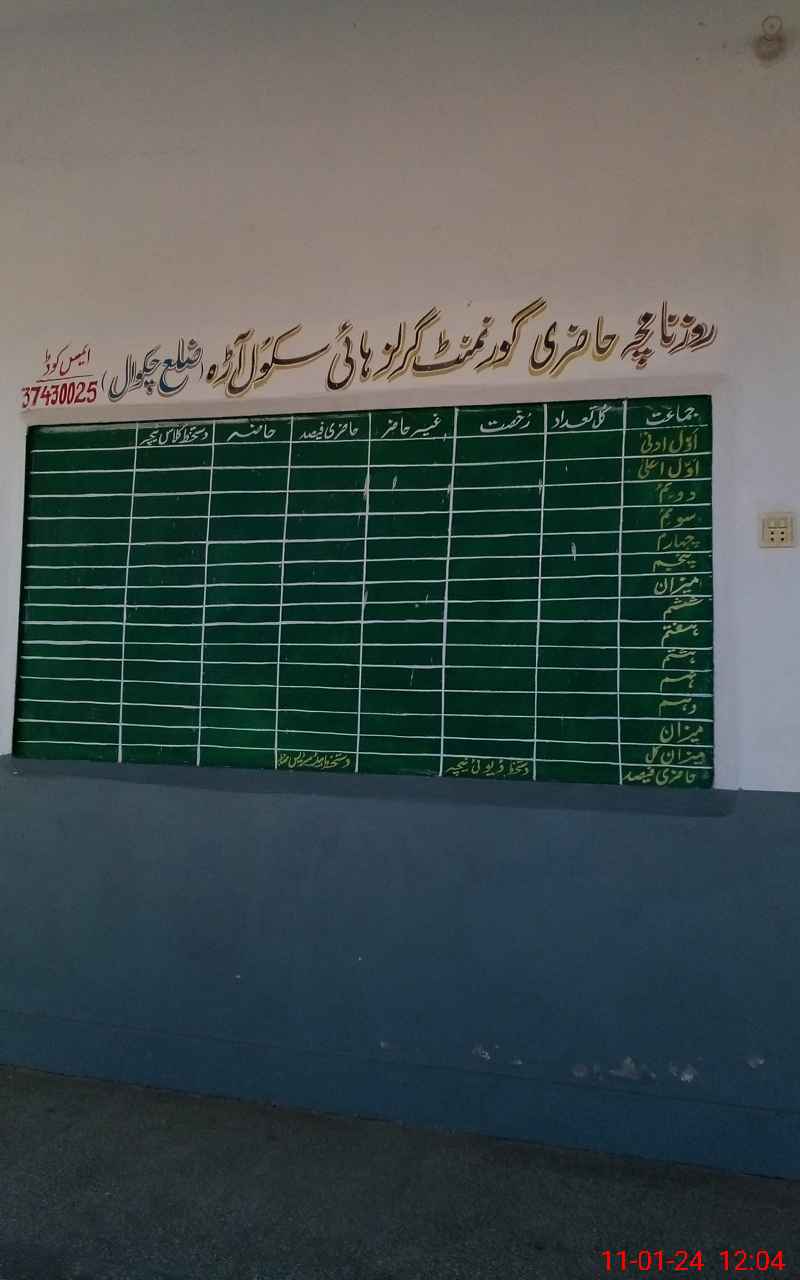 روزنامچہ حاضری گورنمنٹ گرلز ہائی سکول آڑہ (ضلع چکوال)
ائیمس کوڈ
37430025
جماعت کل تعداد رخصت غیر حاضر حاضری فیصد حاضر دستخط کلاس ٹیچر
اوّل ادنیٰ
اوّل اعلیٰ
دوئم
سوئم
چہارم
پنجم
میزان
ششم
ہفتم
ہشتم
نہم
دہم
میزان
میزان کل
حاضری فیصد دستخط ڈیوٹی ٹیچر دستخط ہیڈ مسٹریس
11-01-24 12:04